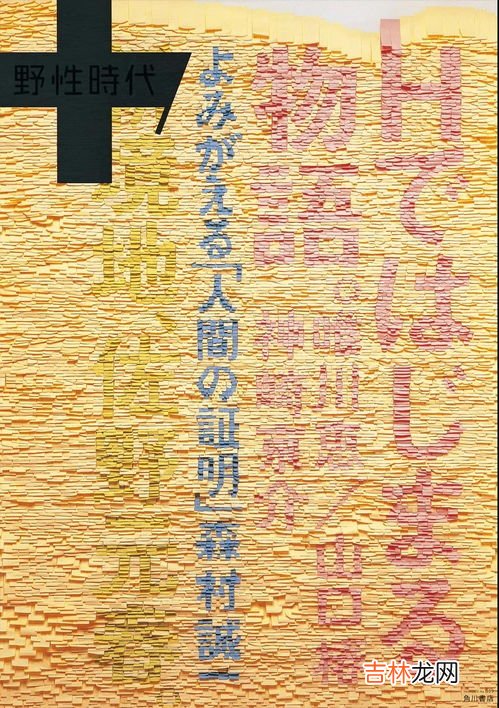 野性時代
Hではじまる
物語。唯川恵／山口椿
神崎京介
よみがえる「人間の証明」森村誠一
境地、佐野元春
吉林龙网
角川書店